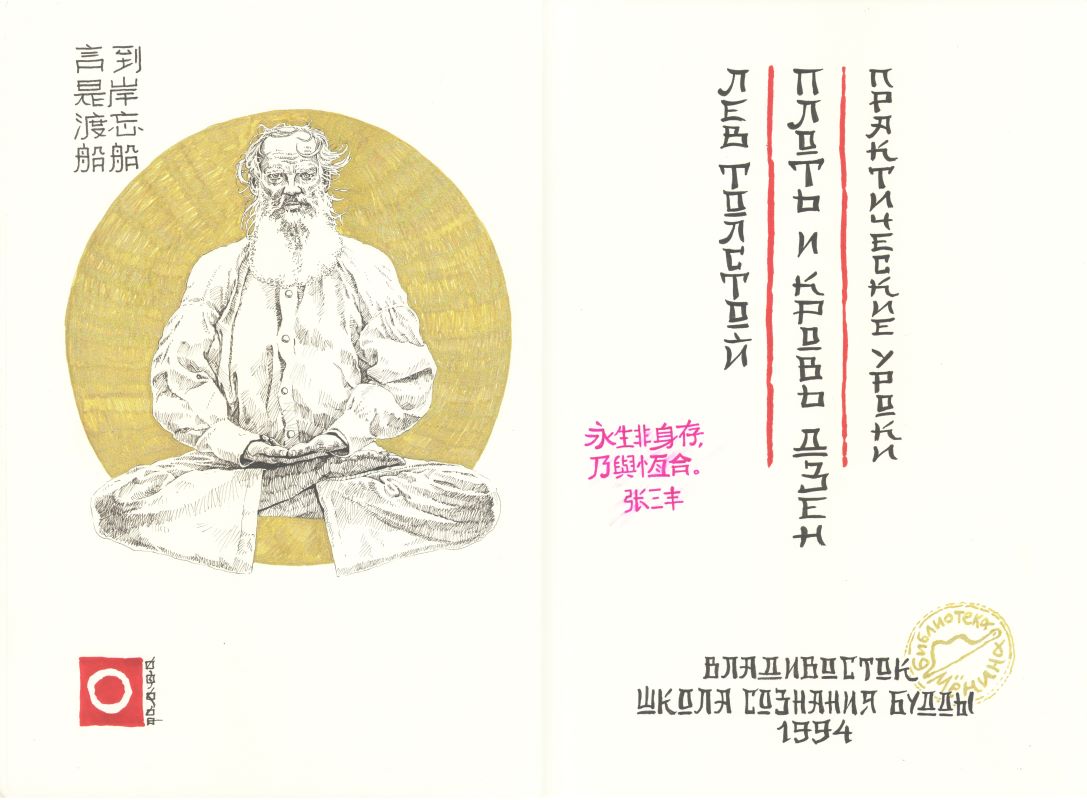 言是渡船
到岸忘船
ЛЕВ ТОЛСТОЙ
ПЛОТЬ И КРОВЬ ДЗЕН
ПРАКТИЧЕСКИЕ УРОКИ
永生非身存,
乃與恆合。
张三丰
БИБЛИОТЕКА
ВЛАДИВОСТОК
ШКОЛА СОЗНАНИЯ БУДДЫ
1994